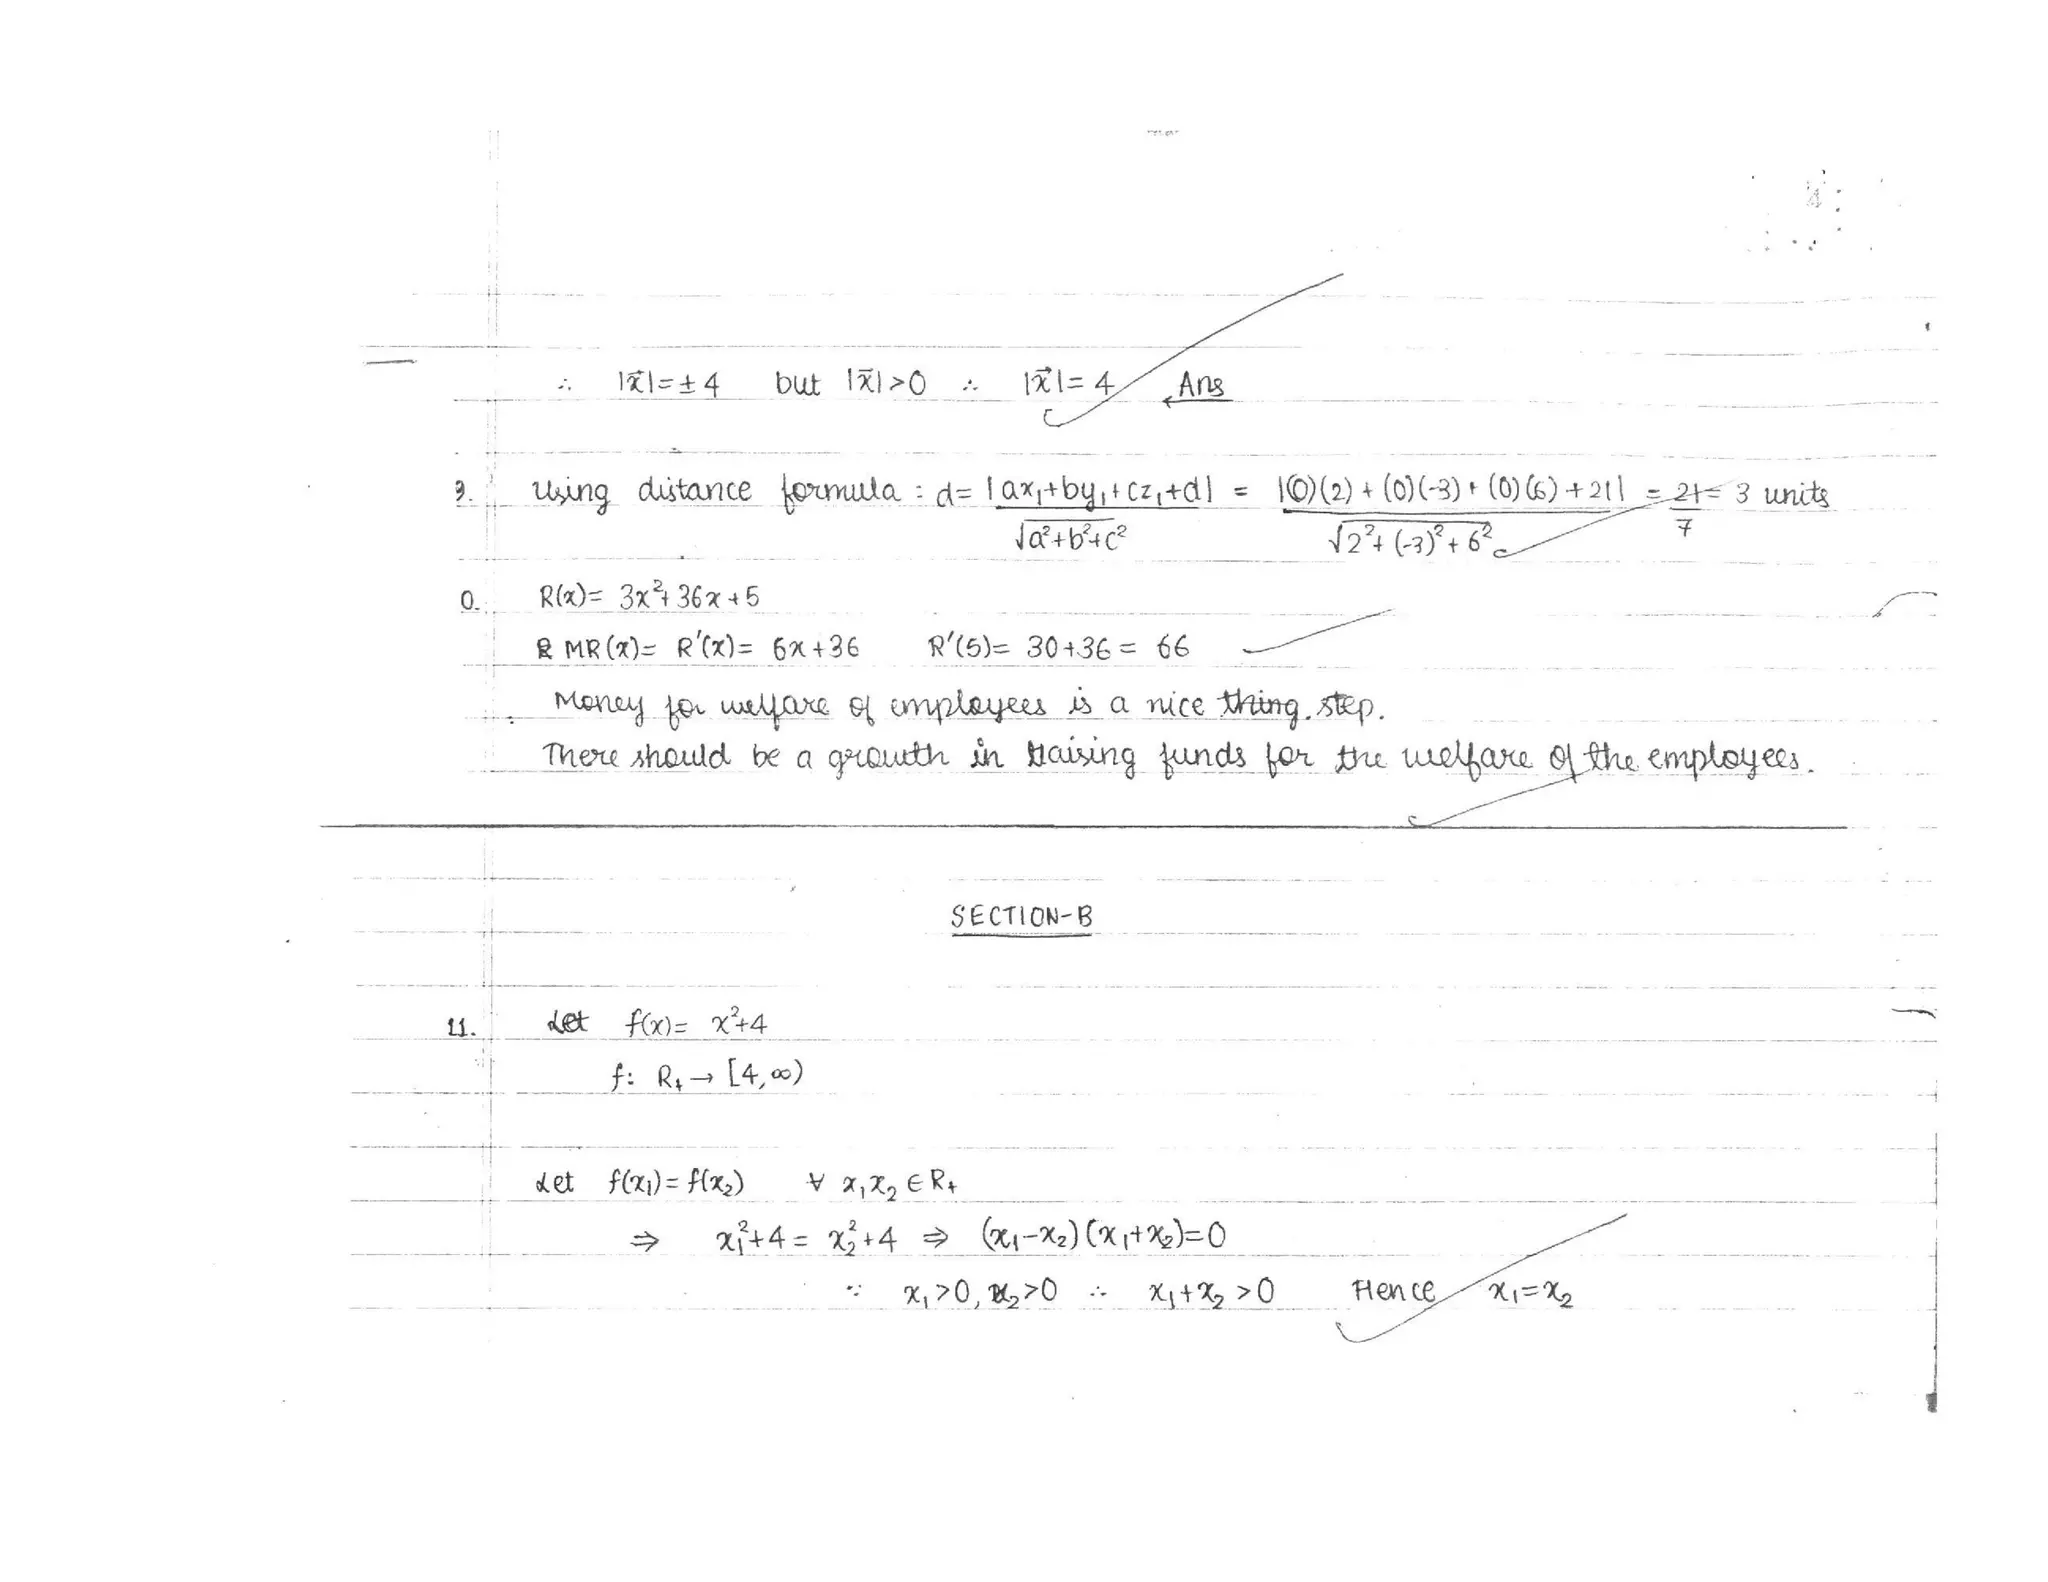 ∴ |x⃗| = ± 4 but |x⃗| > 0 ∴ |x⃗| = 4 Ans
9. Using distance formula : d = |ax₁+by₁+cz₁+d| / √a²+b²+c² = |(0)(2) + (0)(-3) + (0)(6) + 21| / √2²+(-3)²+6² = 21/7 = 3 units
0. R(x) = 3x²+36x+5
MR(x) = R'(x) = 6x+36 R'(5) = 30+36 = 66
Money for welfare of employees is a nice thing. step.
There should be a growth in raising funds for the welfare of the employees.
SECTION-B
11. Let f(x) = x²+4
f: R₊ → [4,∞)
Let f(x₁) = f(x₂) ∀ x₁x₂ ∈ R₊
⇒ x₁²+4 = x₂²+4 ⇒ (x₁-x₂)(x₁+x₂)=0
∵ x₁>0, x₂>0 ∴ x₁+x₂ >0 Hence x₁=x₂